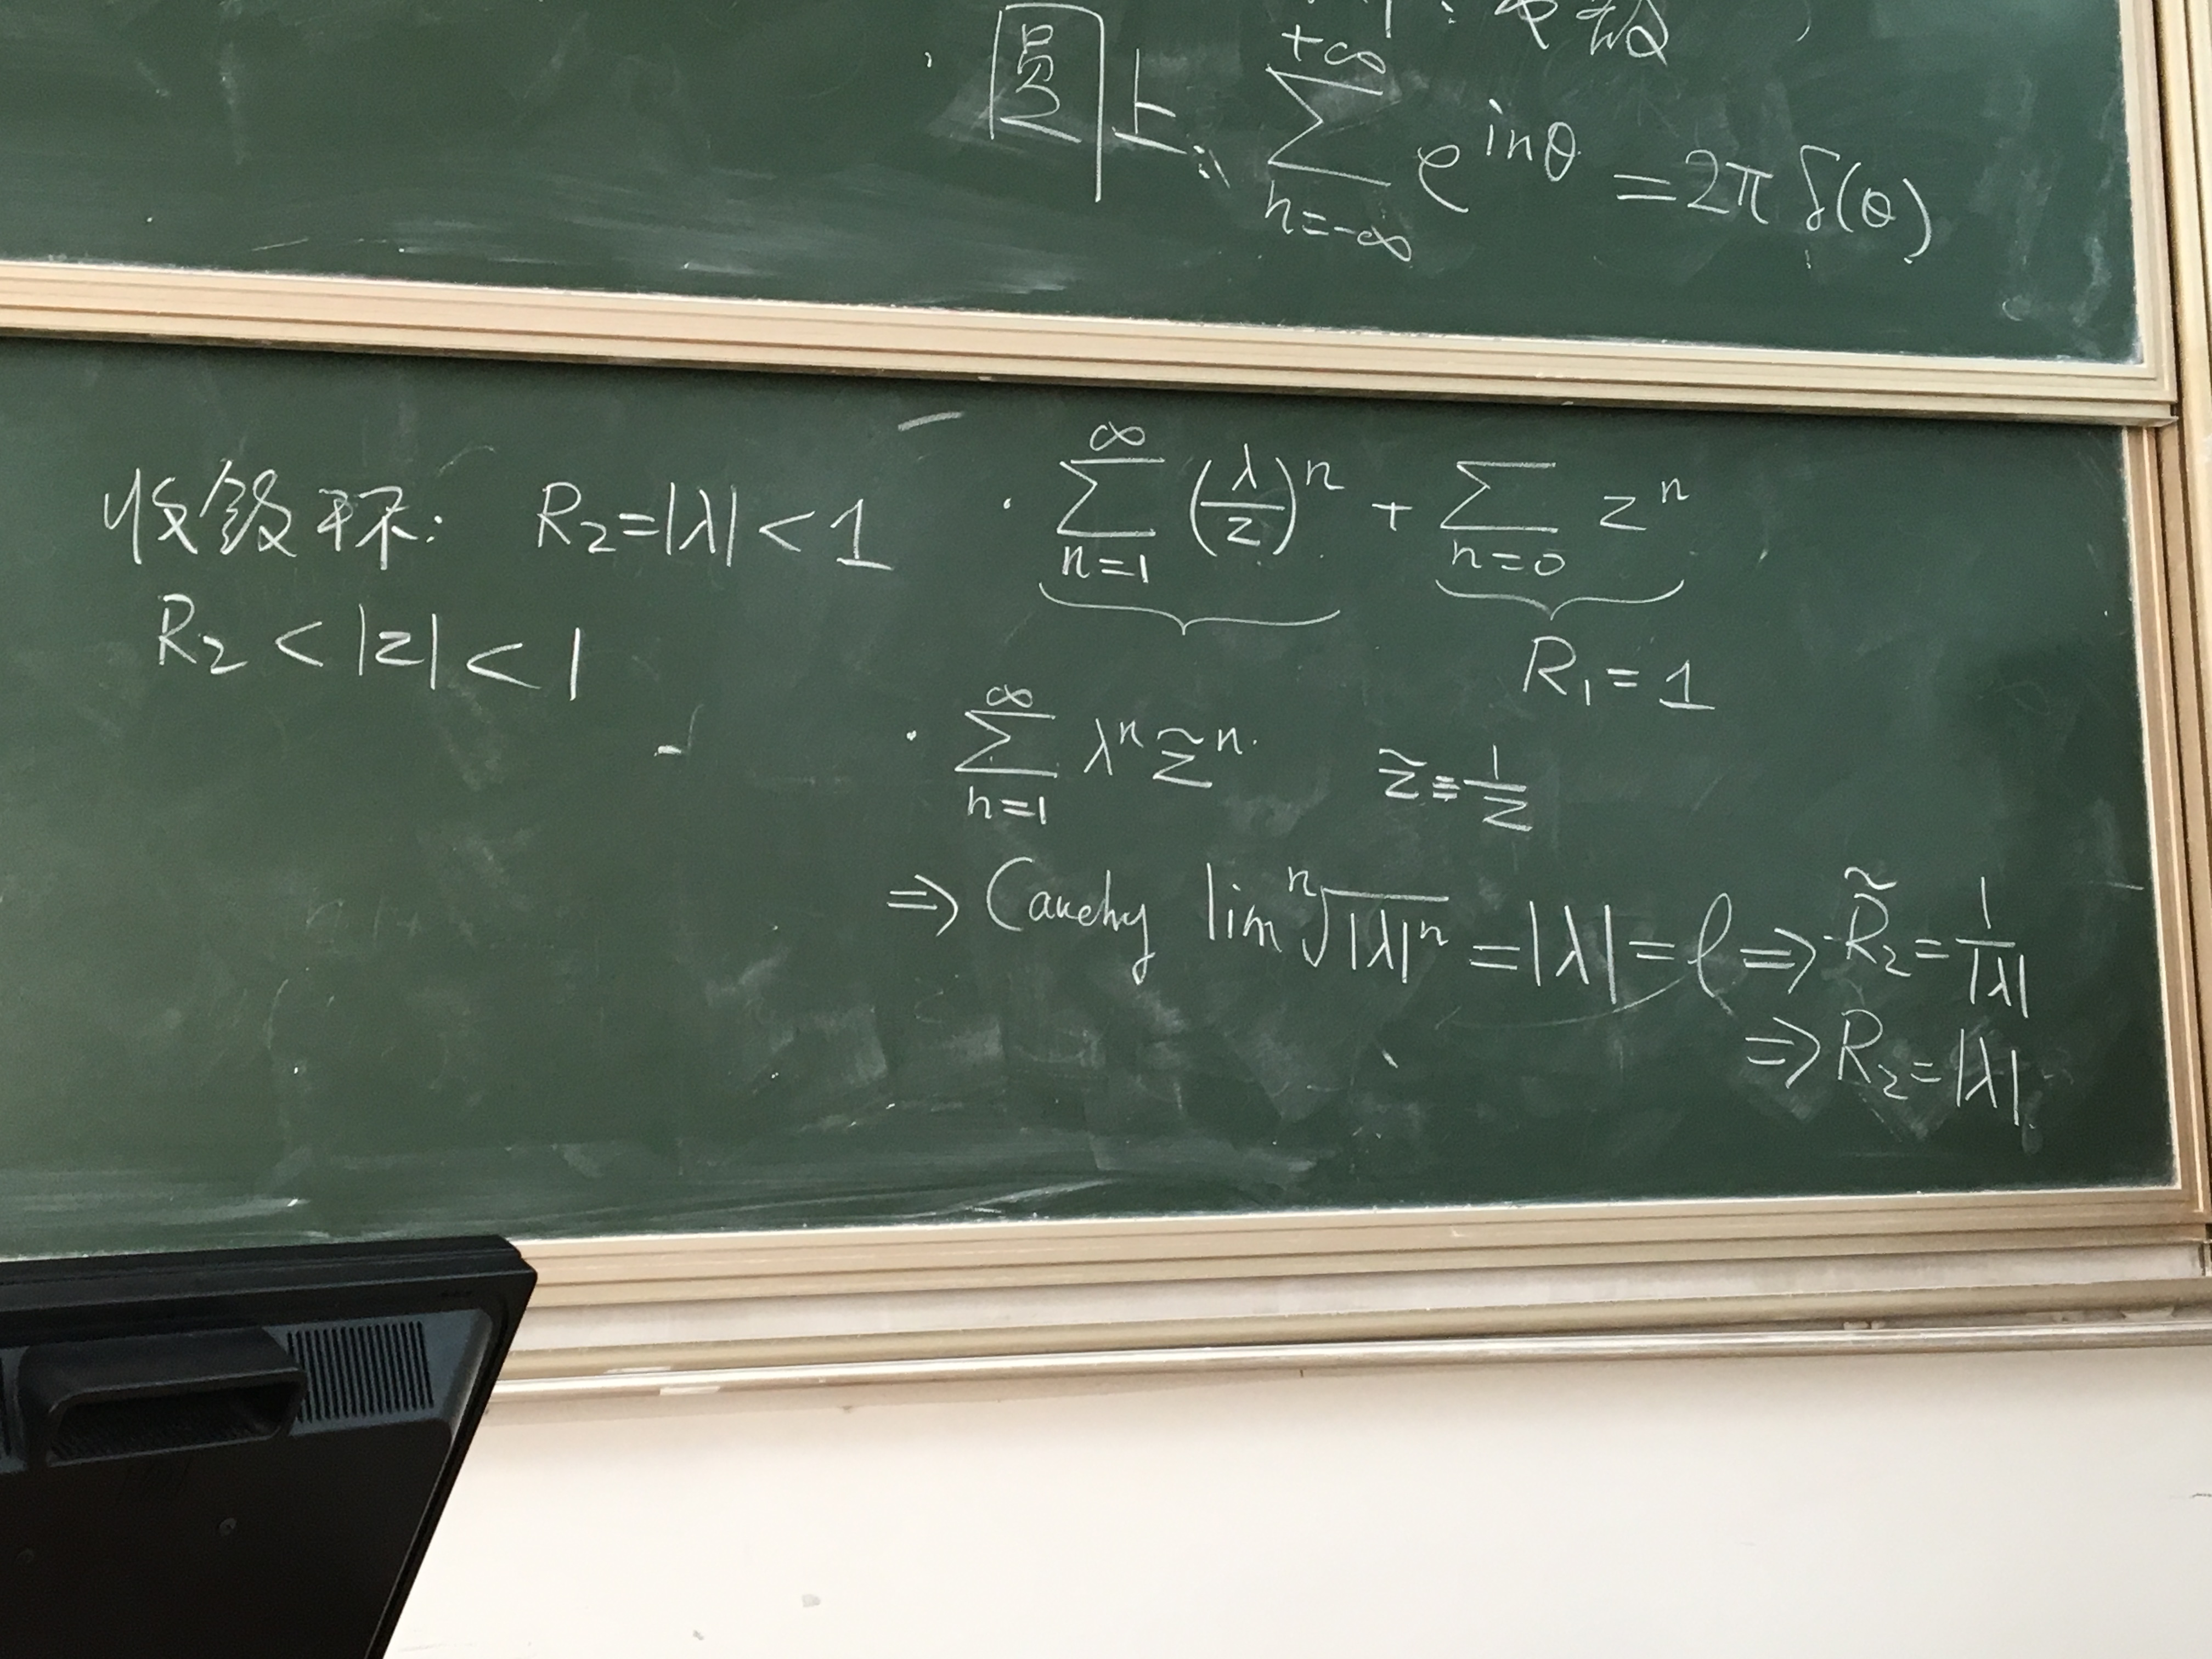 圆上, \sum_{n=-\infty}^{+\infty} e^{inθ} = 2π δ(θ)
收敛环: R₂=|λ| < 1
R₂ < |z| < 1
· \sum_{n=1}^{∞} (\frac{λ}{z})^n + \sum_{n=0} z^n
R₁ = 1
· \sum_{n=1}^{∞} λ^n \tilde{z}^n \tilde{z} ≡ \frac{1}{z}
⇒ Cauchy lim \sqrt[n]{|λ|^n} = |λ| = ℓ ⇒ \tilde{R}₂ = \frac{1}{|λ|}
⇒ R₂ = |λ|